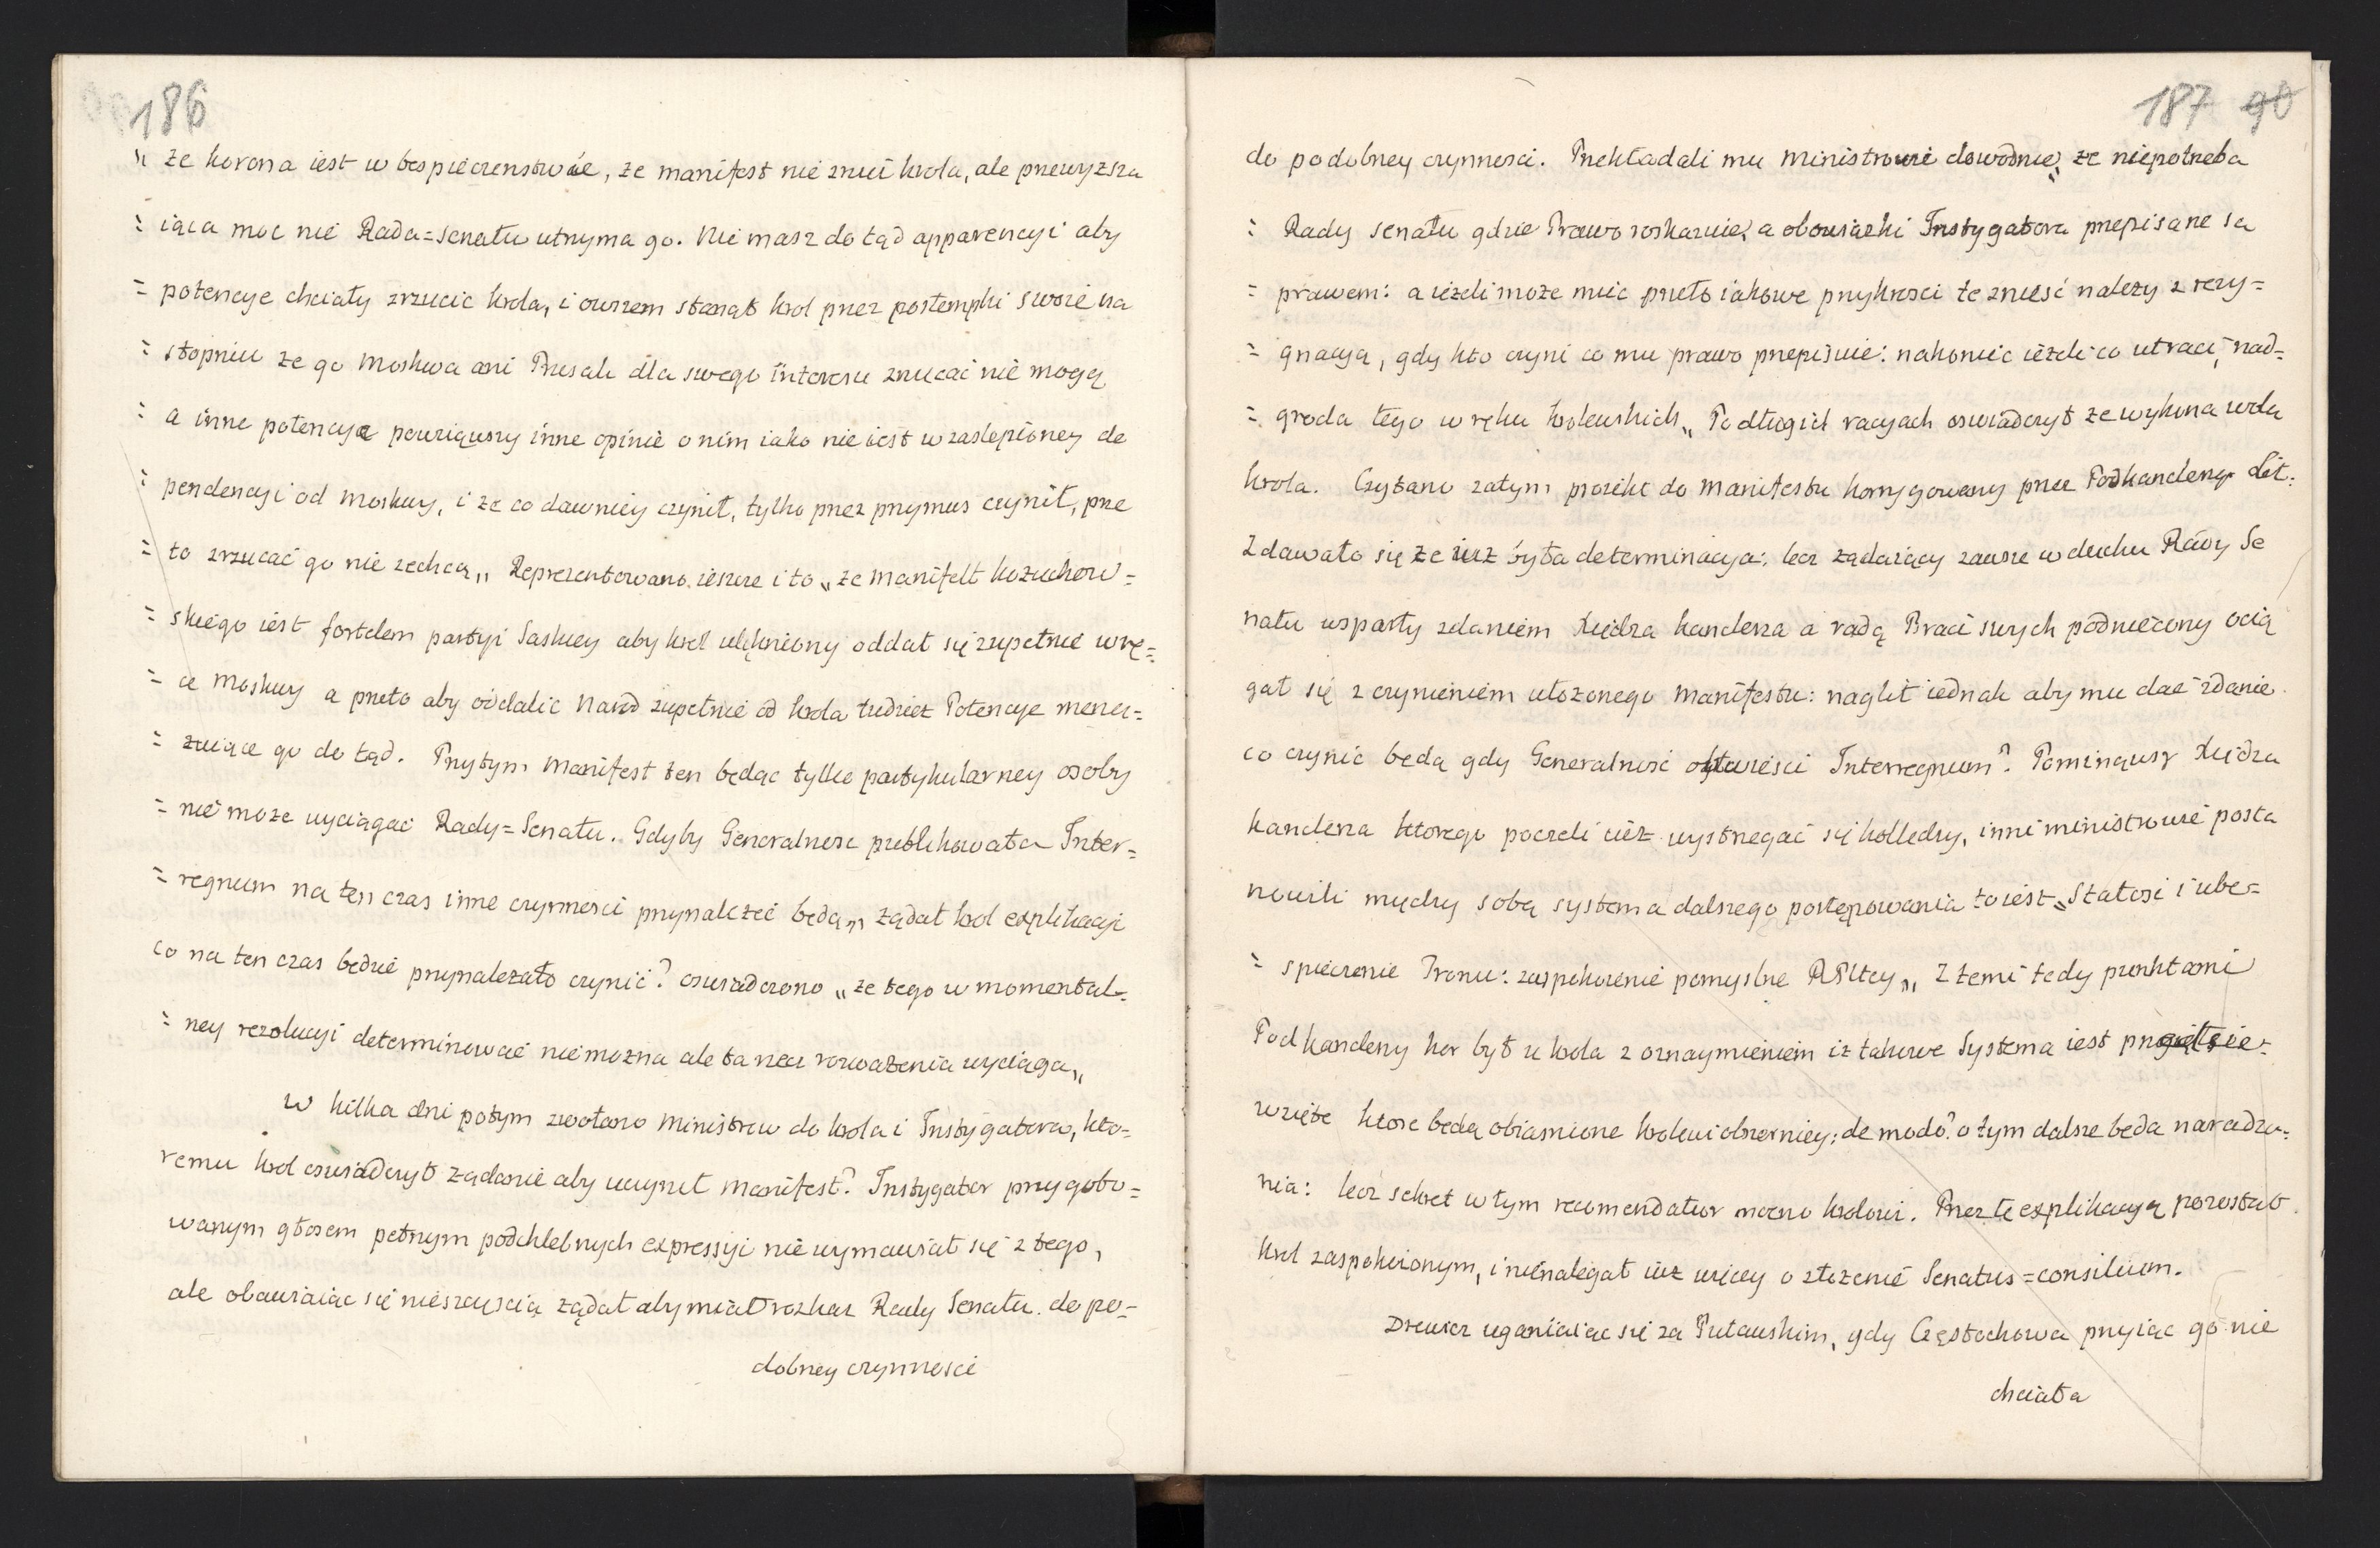 186
„ że korona iest w bespieczenstwie, że manifest nie znui krola, ale przewyzsza
= iąca moc nie Rada=Senatu utrzyma go. Nie masz do tąd apparencyi aby
= potencye chciały zrzucic krola, i owszem stanął krol przez postempki swoie na
= stopniu ze go Moskwa ani Prusak dla swego interesu zrzucać nie mogą
= a inne potencye powziąwszy inne opinie o nim iako nie iest w zaslepioney de
= pendencyi od Moskwy, i ze co dawniey czynił, tylko przez przymus czynił, prze
= to zrzucać go nie zechcą„ Reprezentowano ieszcze i to „ że manifest Kozuchow=
= skiego iest fortelem partyi Saskiey aby krol ulękniony oddał się zupełnie w rę=
= ce Moskwy a przeto aby oddalic Narod zupełnie od krola tudziez Potencye menez=
= zuiące go do tąd. Przytym Manifest ten będąc tylko partykularney osoby
= nie moze wyciągać Rady=Senatu. Gdyby Generalnosc publikowała Inter=
= regnum na ten czas inne czynnosci przynalezeć będą„ żądał krol explikacyi
co na ten czas będzie przynalezało czynić? oswiadczono „ że tego w momental=
= ney rezolucyi determinować nie mozna ale ta rzecz rozwazenia wyciąga„
w kilka dni potym zwołano Ministrow do krola i Instygatora, kto=
remu krol oswiadczył żądanie aby uczynił Manifest? Instygator przygoto=
wanym głosem pełnym podchlebnych expressyi nie wymawiał się z tego,
ale obawiaiąc się nieszczęscia żądał aby miał rozkaz Rady Senatu do po=
dobney czynnosci
187 90
do podobney czynnosci. Przekładali mu Ministrowie dowodnie „ że niepotrzeba
= Rady senatu gdzie Prawo roskazuie, a obowiązki Instygatora przepisane są
= prawem: a ieżeli może mieć przeto iakowe przykrosci te znieść nalezy z rezy=
= gnacyą, gdy kto czyni co mu prawo przepisuie: nakoniec ieżeli co utraci, nad=
= groda tego w ręku krolewskich„ Po długich racyach oswiadczył że wykona wolą
krola. Czytano zatym proiekt do Manifestu korrygowany przez Podkanclerzego Lit:
Zdawało się że iuż była determinacya: lecz żądaiący zawsze w duchu Rady Se
natu wsparty zdaniem Xiędza kanclerza a radą Braci swych podniecony ocią
gał się z czynieniem ułozonego Manifestu: naglił iednak aby mu dać zdanie
co czynić będą gdy Generalność obwieści Interregnum? Pominąwszy Xiędza
kanclerza ktorego poczeli iuż wystrzegać się kolledzy, inni ministrowie posta
nowili między sobą systema dalszego postępowania to iest „ Statosi i ube=
= spieczenie Tronu: zaspokoienie pomyslne RPltey„ Z temi tedy punktami
Podkanclerzy kor był u krola z oznaymieniem iż takowe Systema iest przedsię=
wzięte ktore będą obiasnione krolowi obszerniey; de modo? o tym dalsze będą naradza=
nia: lecz sekret w tym recomendatur mocno krolowi. Przez tę explikacyą pozostał
krol zaspokoionym, i nienalegał iuż więcey o złożenie Senatus=consilium.
Drewicz uganiaiąc się za Pułaskim, gdy Częstochowa przyiąc go nie
chciała